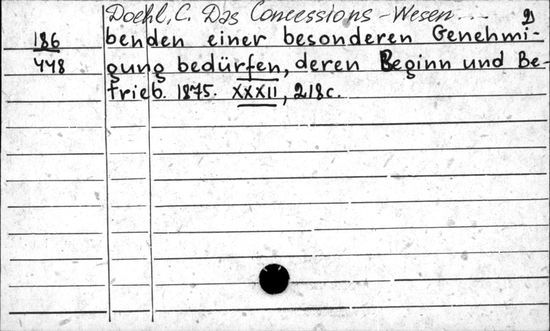 Doehl, C. Das Concessions-Wesen... 2)
186
448
benden einer besonderen Genehmi-
gung bedürfen, deren Beginn und Be-
trieb. 1875. XXXII, 218c.